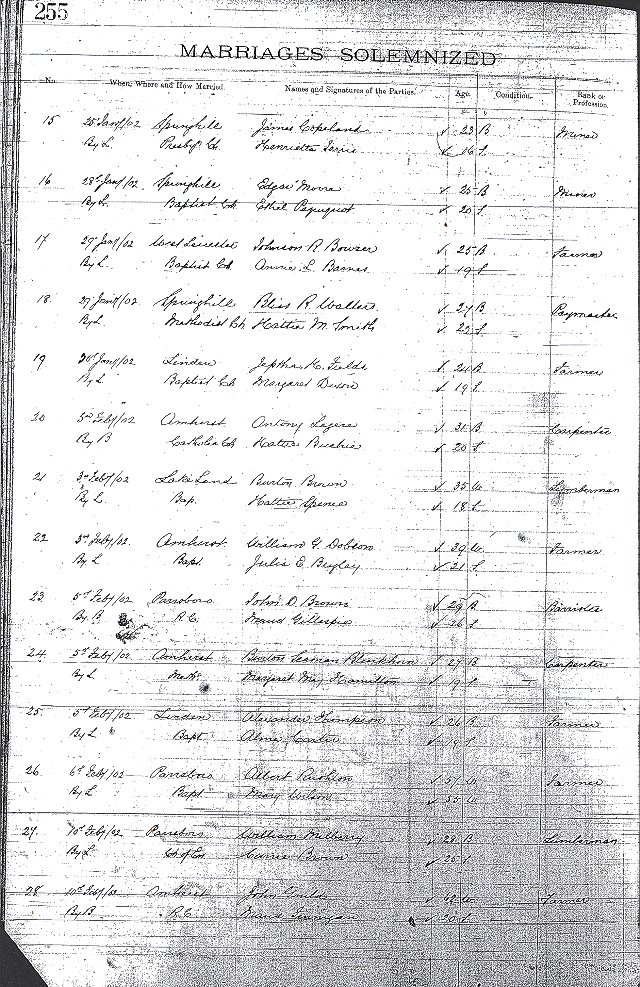 255
MARRIAGES SOLEMNIZED
No. When, Where and How Married. Names and Signatures of the Parties. Age. Condition. Rank or Profession.
15 25 Jany/02 Springhill James Copeland ✓ 23 B Miner
By L Presby. Ch Henrietta ✓ 16 S
16 28th Jany/02 Springhill Edgar ✓ 25 B Miner
By L. Baptist Ch Ethel Pequgnot ✓ 20 S
17 27th Jany/02 West Leicester Johnson R. Bowser ✓ 25 B Farmer
By L Baptist Ch Annie L. Barnes ✓ 19 S
18 27 Jany/02 Springhill Bliss R Walters ✓ 27 B Paymaster
By L Methodist Ch Hattie M. Smith ✓ 23 S
19 Jany/02 Linden Jeptha K. Fields ✓ 24 B Farmer
By L Baptist Ch Margaret Dixon ✓ 19 S
20 Feby/02 Amherst Antony ✓ 31 B Carpenter
By B Catholic Ch Hattie ✓ 20 S
21 3rd Feby/02 Lake Land Burton Brown ✓ 35 W Lumberman
By L. Bap. Hattie Spence ✓ 18 S
22 3rd Feby/02 Amherst William G. Dobson ✓ 39 W Farmer
By L Bapt. Julia E. ✓ 21 S
23 5th Feby/02 Parrsboro John D. Brown ✓ 29 B Barrister
By B R.C. Maud Gillespie ✓ 26 S
24 5th Feby/02 Amherst Burton Seaman Blenkhorn ✓ 27 B Carpenter
By L Meth. Margaret May Hamilton ✓ 19 S
25 5th Feby/02 Linden Alexander Thompson ✓ 26 B Farmer
By L Bapt Carter ✓ 19 S
26 6th Feby/02 Parrsboro Albert Rushton ✓ 57 W Farmer
By L Bapt Mary Wilson ✓ 55 W
27 10th Feby/02 Parrsboro William ✓ 28 B Lumberman
By L Ch of En Carrie Brown ✓ 25 S
28 10th Feby/02 Amherst John ✓ W Farmer
By B R.C. ✓ S